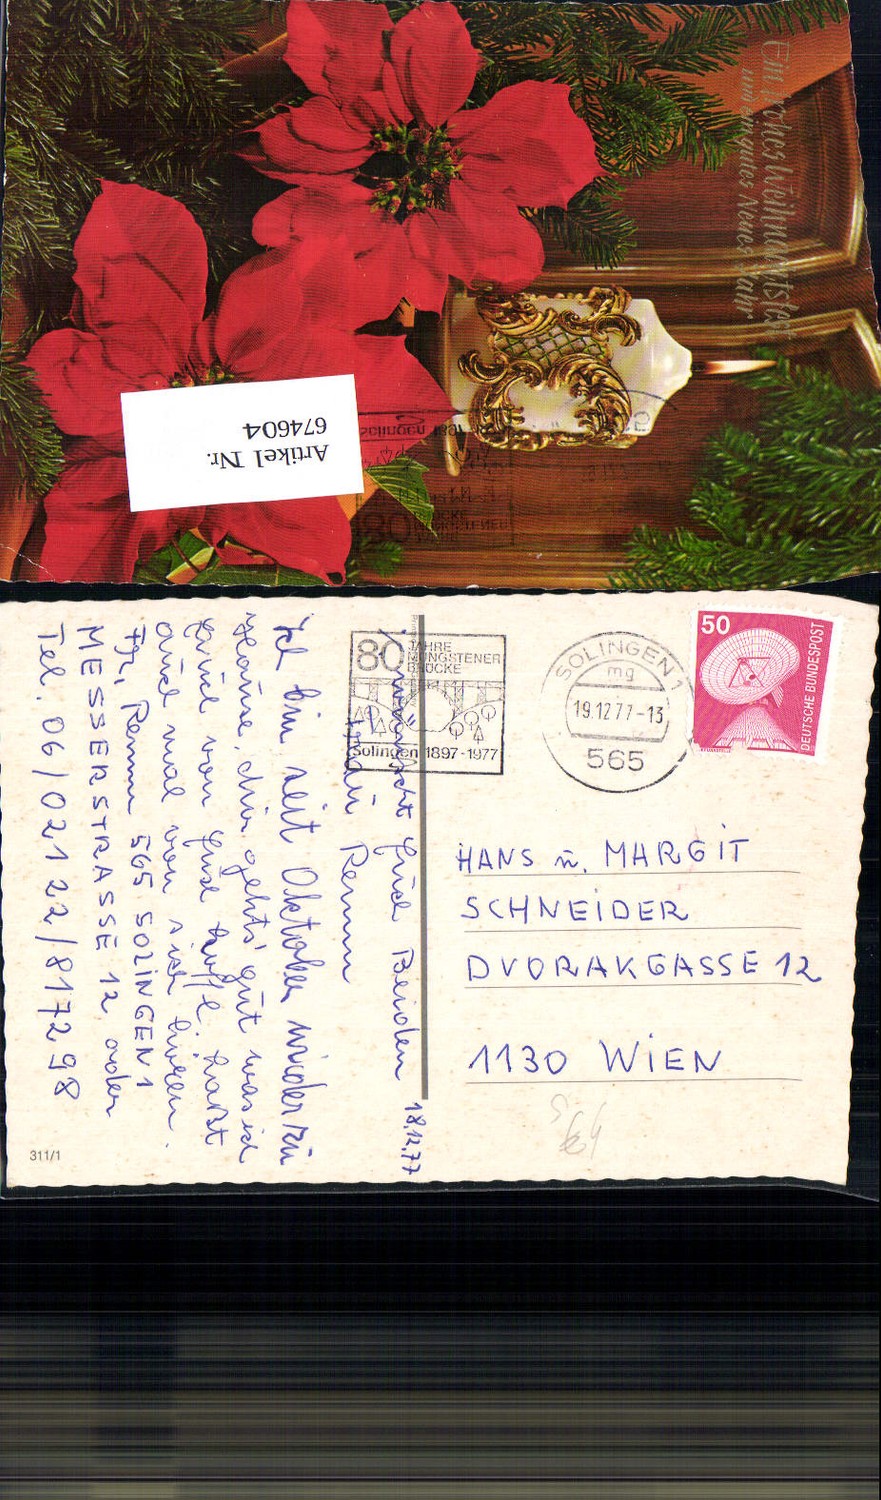 Ein frohes Weihnachtsfest
und ein gutes Neues Jahr
Artikel Nr.
674604
Solingen 1897
80
BRÜCKE
80 JAHRE
MÜNGSTENER
BRÜCKE
Solingen 1897-1977
SOLINGEN 1
mg
19.12.77-13
565
50
DEUTSCHE BUNDESPOST
HANS u. MARGIT
SCHNEIDER
DVORAKGASSE 12
1130 WIEN
18.12.77
wünscht Euch Beiden
Remm
Ich bin seit Oktober wieder zu
Hause, mir gehts gut was ich
auch von Euch hoffe. Laßt
auch mal von sich hören.
Fr. Remm 565 SOLINGEN 1
MESSERSTRASSE 12 oder
Tel. 06/02122/817298
311/1